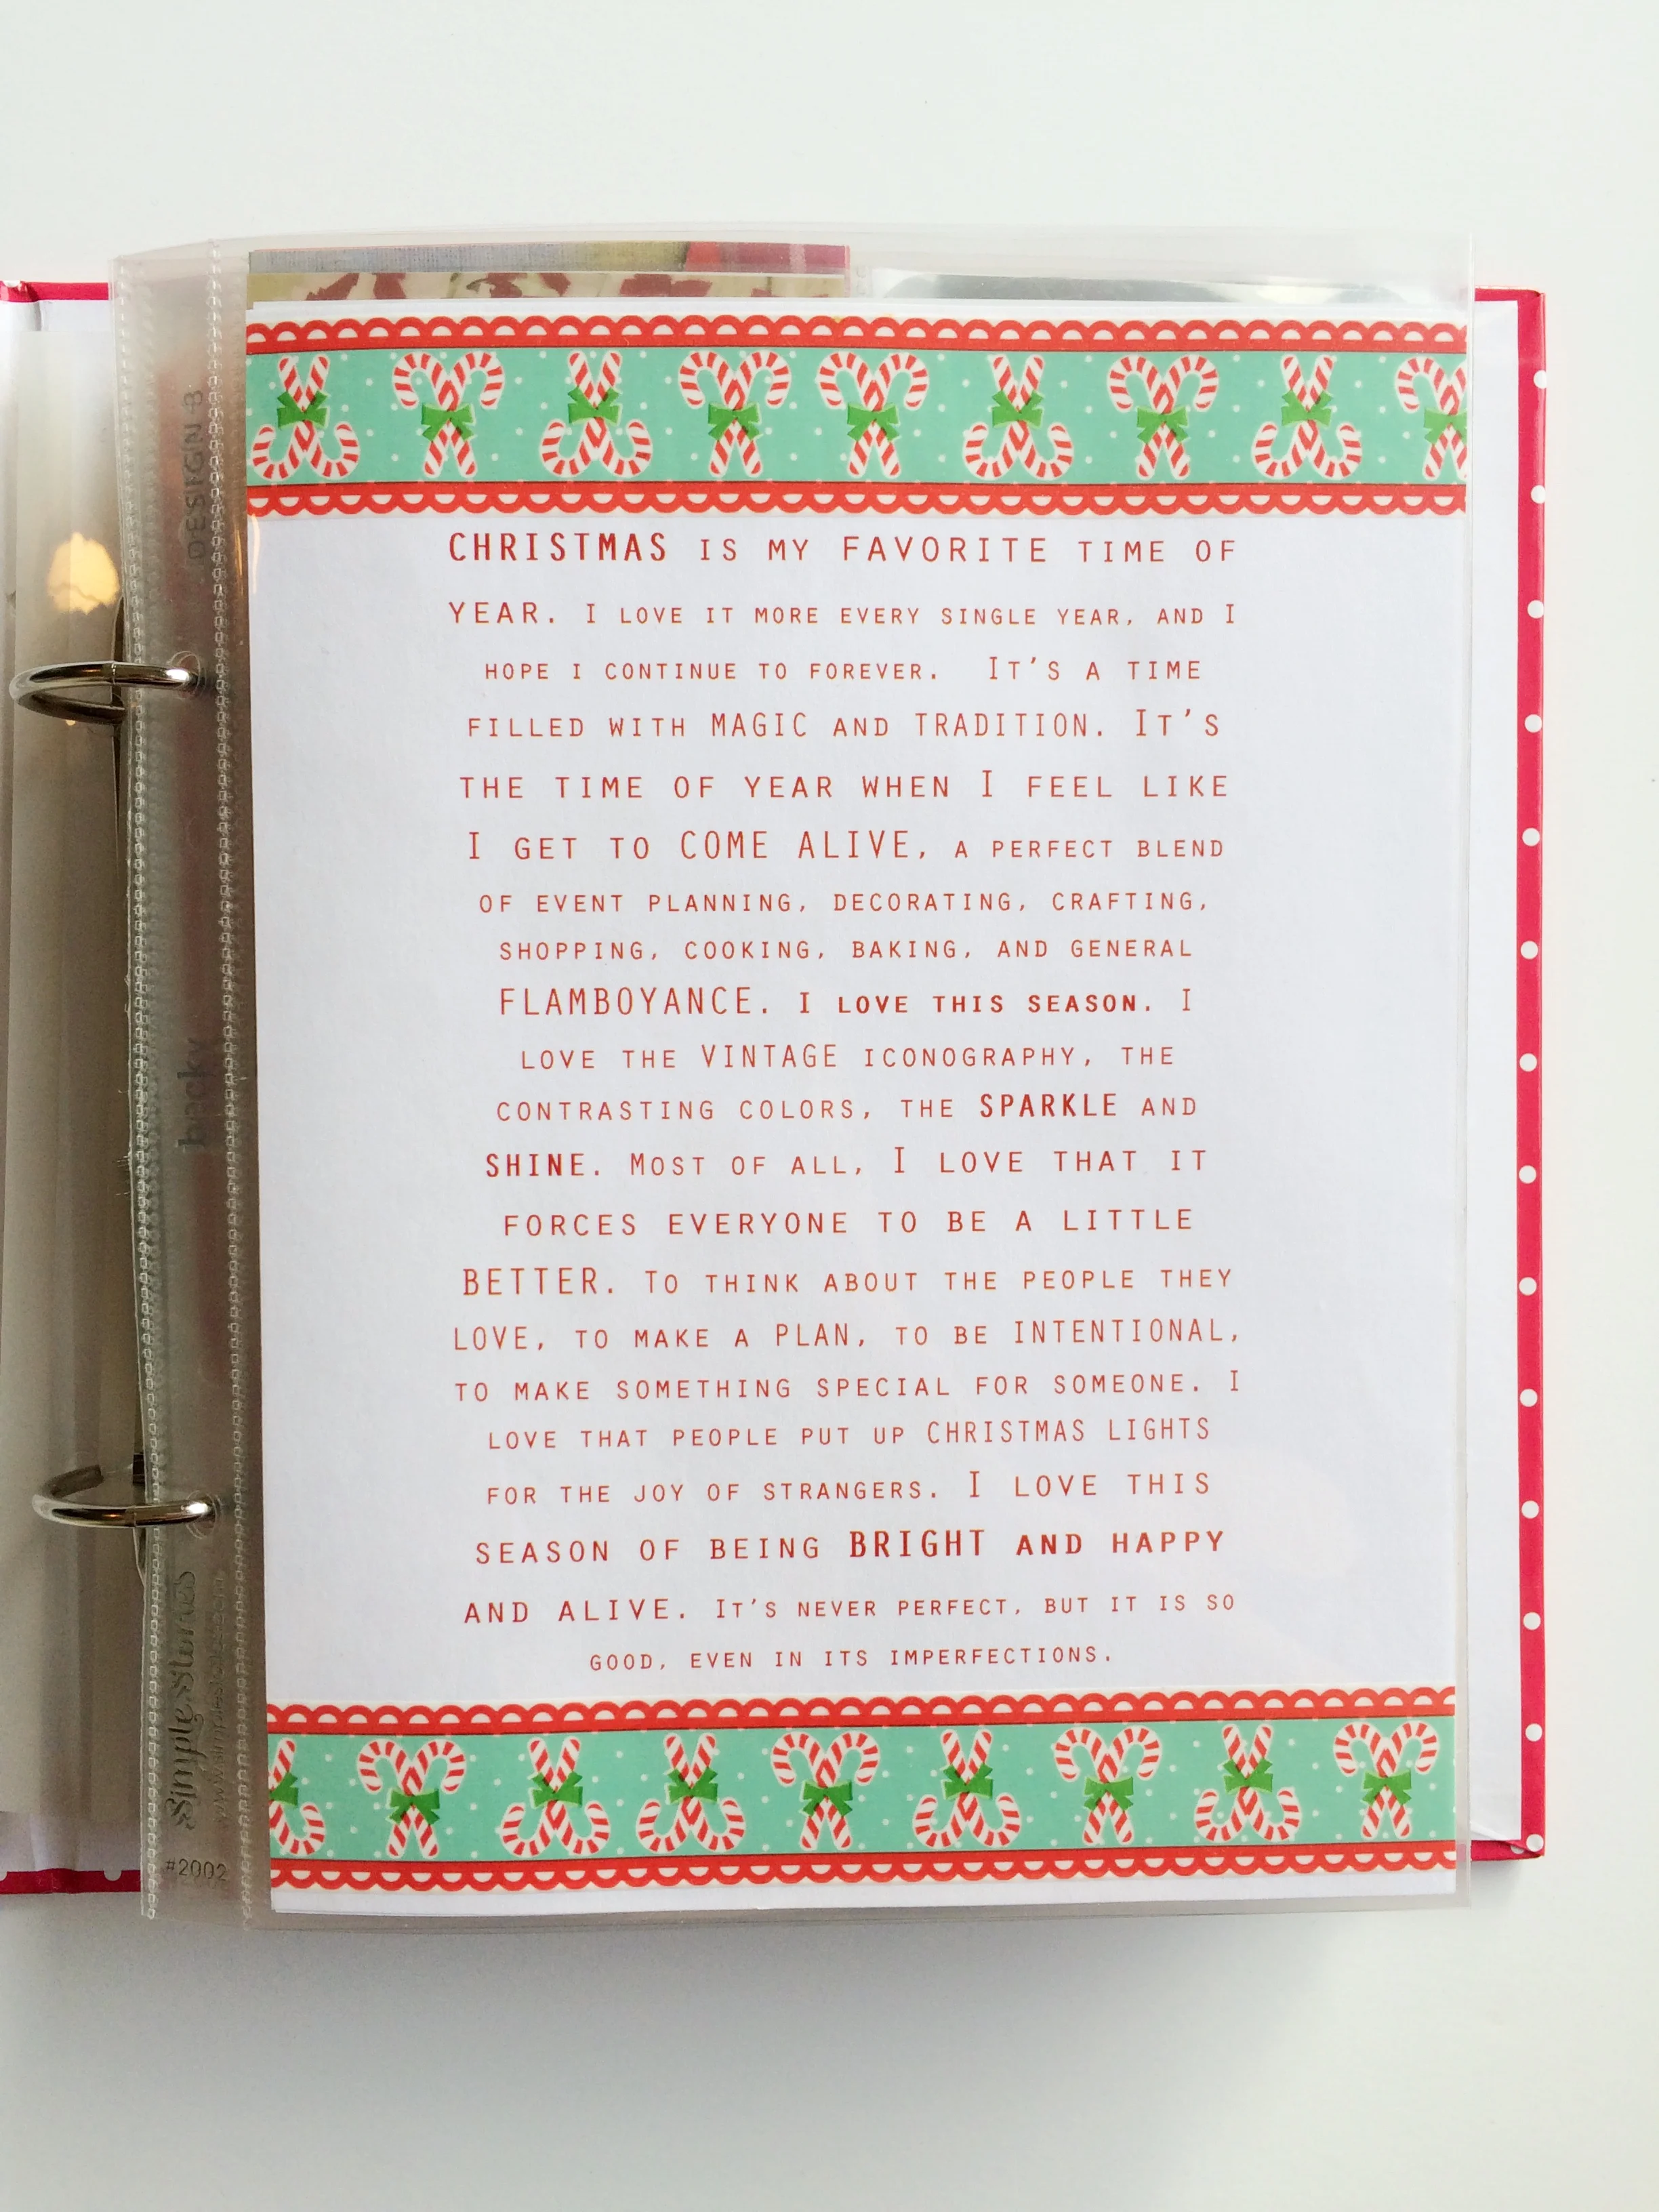 CHRISTMAS IS MY FAVORITE TIME OF
YEAR. I LOVE IT MORE EVERY SINGLE YEAR, AND I
HOPE I CONTINUE TO FOREVER. IT'S A TIME
FILLED WITH MAGIC AND TRADITION. IT'S
THE TIME OF YEAR WHEN I FEEL LIKE
I GET TO COME ALIVE, A PERFECT BLEND
OF EVENT PLANNING, DECORATING, CRAFTING,
SHOPPING, COOKING, BAKING, AND GENERAL
FLAMBOYANCE. I LOVE THIS SEASON. I
LOVE THE VINTAGE ICONOGRAPHY, THE
CONTRASTING COLORS, THE SPARKLE AND
SHINE. MOST OF ALL, I LOVE THAT IT
FORCES EVERYONE TO BE A LITTLE
BETTER. TO THINK ABOUT THE PEOPLE THEY
LOVE, TO MAKE A PLAN, TO BE INTENTIONAL,
TO MAKE SOMETHING SPECIAL FOR SOMEONE. I
LOVE THAT PEOPLE PUT UP CHRISTMAS LIGHTS
FOR THE JOY OF STRANGERS. I LOVE THIS
SEASON OF BEING BRIGHT AND HAPPY
AND ALIVE. IT'S NEVER PERFECT, BUT IT IS SO
GOOD, EVEN IN ITS IMPERFECTIONS.
DESIGN B
Simple Stories
#2002